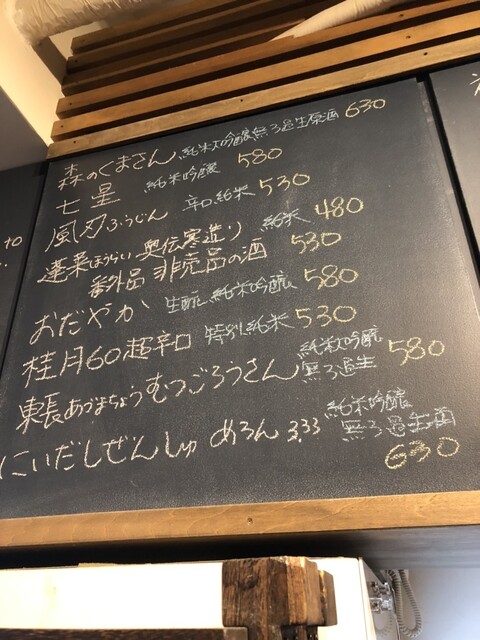 森のくまさん 純米大吟醸無ろ過生原酒 630
七星 純米吟醸 580
風刃ふうじん 辛口純米 530
蓬莱ほうらい 奥伝寒造り 純米 480
番外品 非売品の酒 530
おだやか 生酛純米吟醸 580
桂月60超辛口 特別純米 530
東長あづまちょう むつごろうさん 純米大吟醸 無ろ過生 580
にいだしぜんしゅ めろん3.33 純米吟醸 無ろ過生酒
630
to